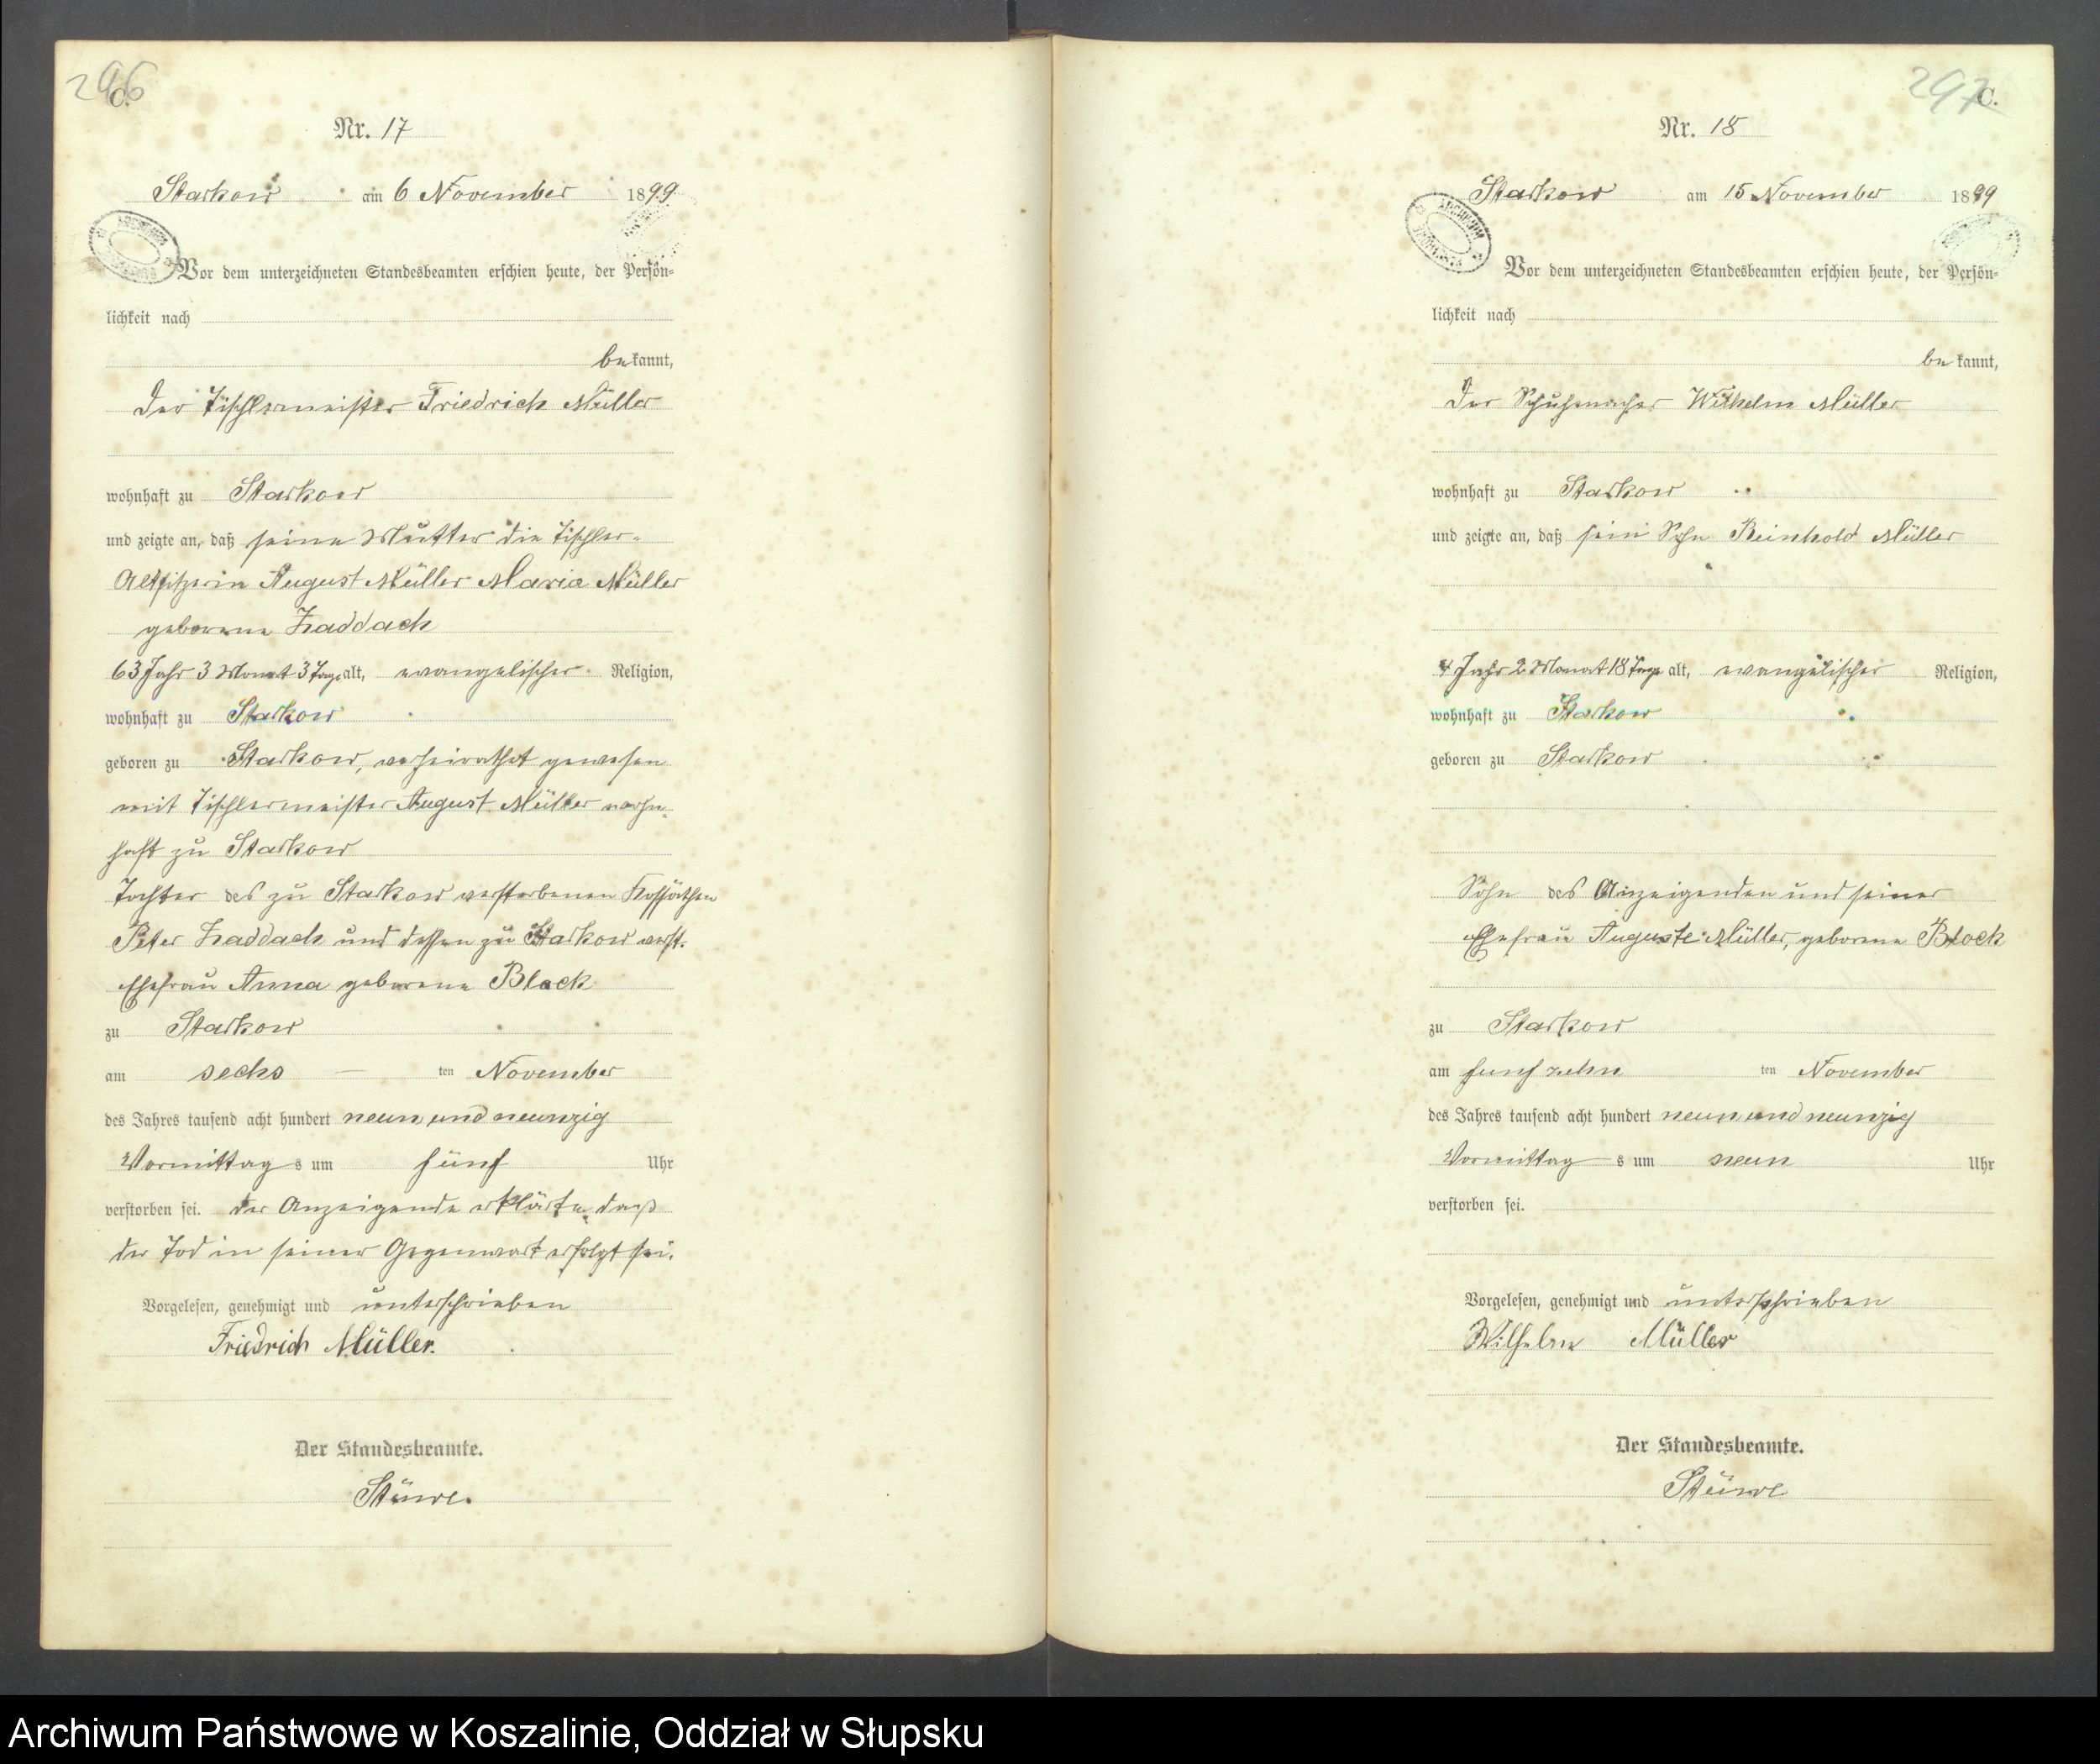 296
C.
Nr. 17
Starkow am 6 November 1899
Vor dem unterzeichneten Standesbeamten erschien heute, der Persön-
lichkeit nach
be kannt,
der Tischlermeister Friedrich Müller
wohnhaft zu Starkow
und zeigte an, daß seine Mutter die Tischler-
Altsitzerin August Müller Maria Müller
geborene Zaddach
63 Jahr 3 Monat 3 Tage alt, evangelischer Religion,
wohnhaft zu Starkow
geboren zu Starkow, verheirathet gewesen
mit Tischlermeister August Müller wohn-
haft zu Starkow
Tochter des zu Starkow verstorbenen Kossäthen
Peter Zaddach und dessen zu Starkow verst.
Ehefrau Anna geborene Block
zu Starkow
am sechs ten November
des Jahres tausend acht hundert neun und neunzig
Vormittag s um fünf Uhr
verstorben sei. der Anzeigende erklärte, daß
der Tod in seiner Gegenwart erfolgt sei.
Vorgelesen, genehmigt und unterschrieben
Friedrich Müller.
Der Standesbeamte.
Stüwe.
297
C.
Nr. 18
Starkow am 15 November 1899
Vor dem unterzeichneten Standesbeamten erschien heute, der Persön-
lichkeit nach
be kannt,
der Schuhmacher Wilhelm Müller
wohnhaft zu Starkow
und zeigte an, daß sein Sohn Reinhold Müller
4 Jahr 2 Monat 18 Tage alt, evangelischer Religion,
wohnhaft zu Starkow
geboren zu Starkow
Sohn des Anzeigenden und seiner
Ehefrau Auguste Müller, geborene Block
zu Starkow
am funfzehn ten November
des Jahres tausend acht hundert neun und neunzig
Vormittag s um neun Uhr
verstorben sei.
Vorgelesen, genehmigt und unterschrieben
Wilhelm Müller
Der Standesbeamte.
Stüwe
Archiwum Państwowe w Koszalinie, Oddział w Słupsku